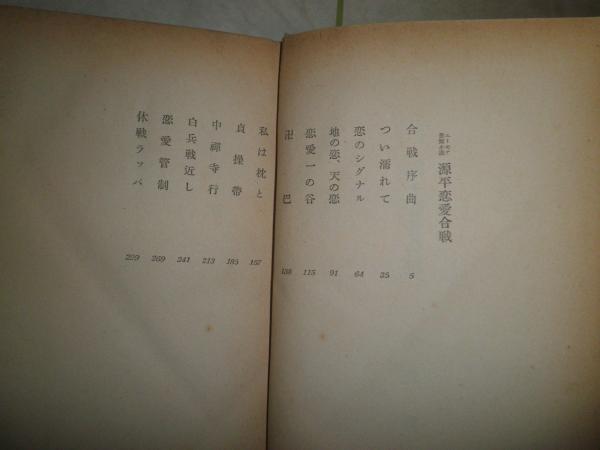 ユーモア
長篇小説
源平恋愛合戦
合戦序曲 5
つい濡れて 35
恋のシグナル 64
地の恋、天の恋 91
恋愛一の谷 115
卍巴 138
私は枕と 157
貞操帯 185
中禅寺行 213
白兵戦近し 241
恋愛管制 269
休戦ラッパ 299